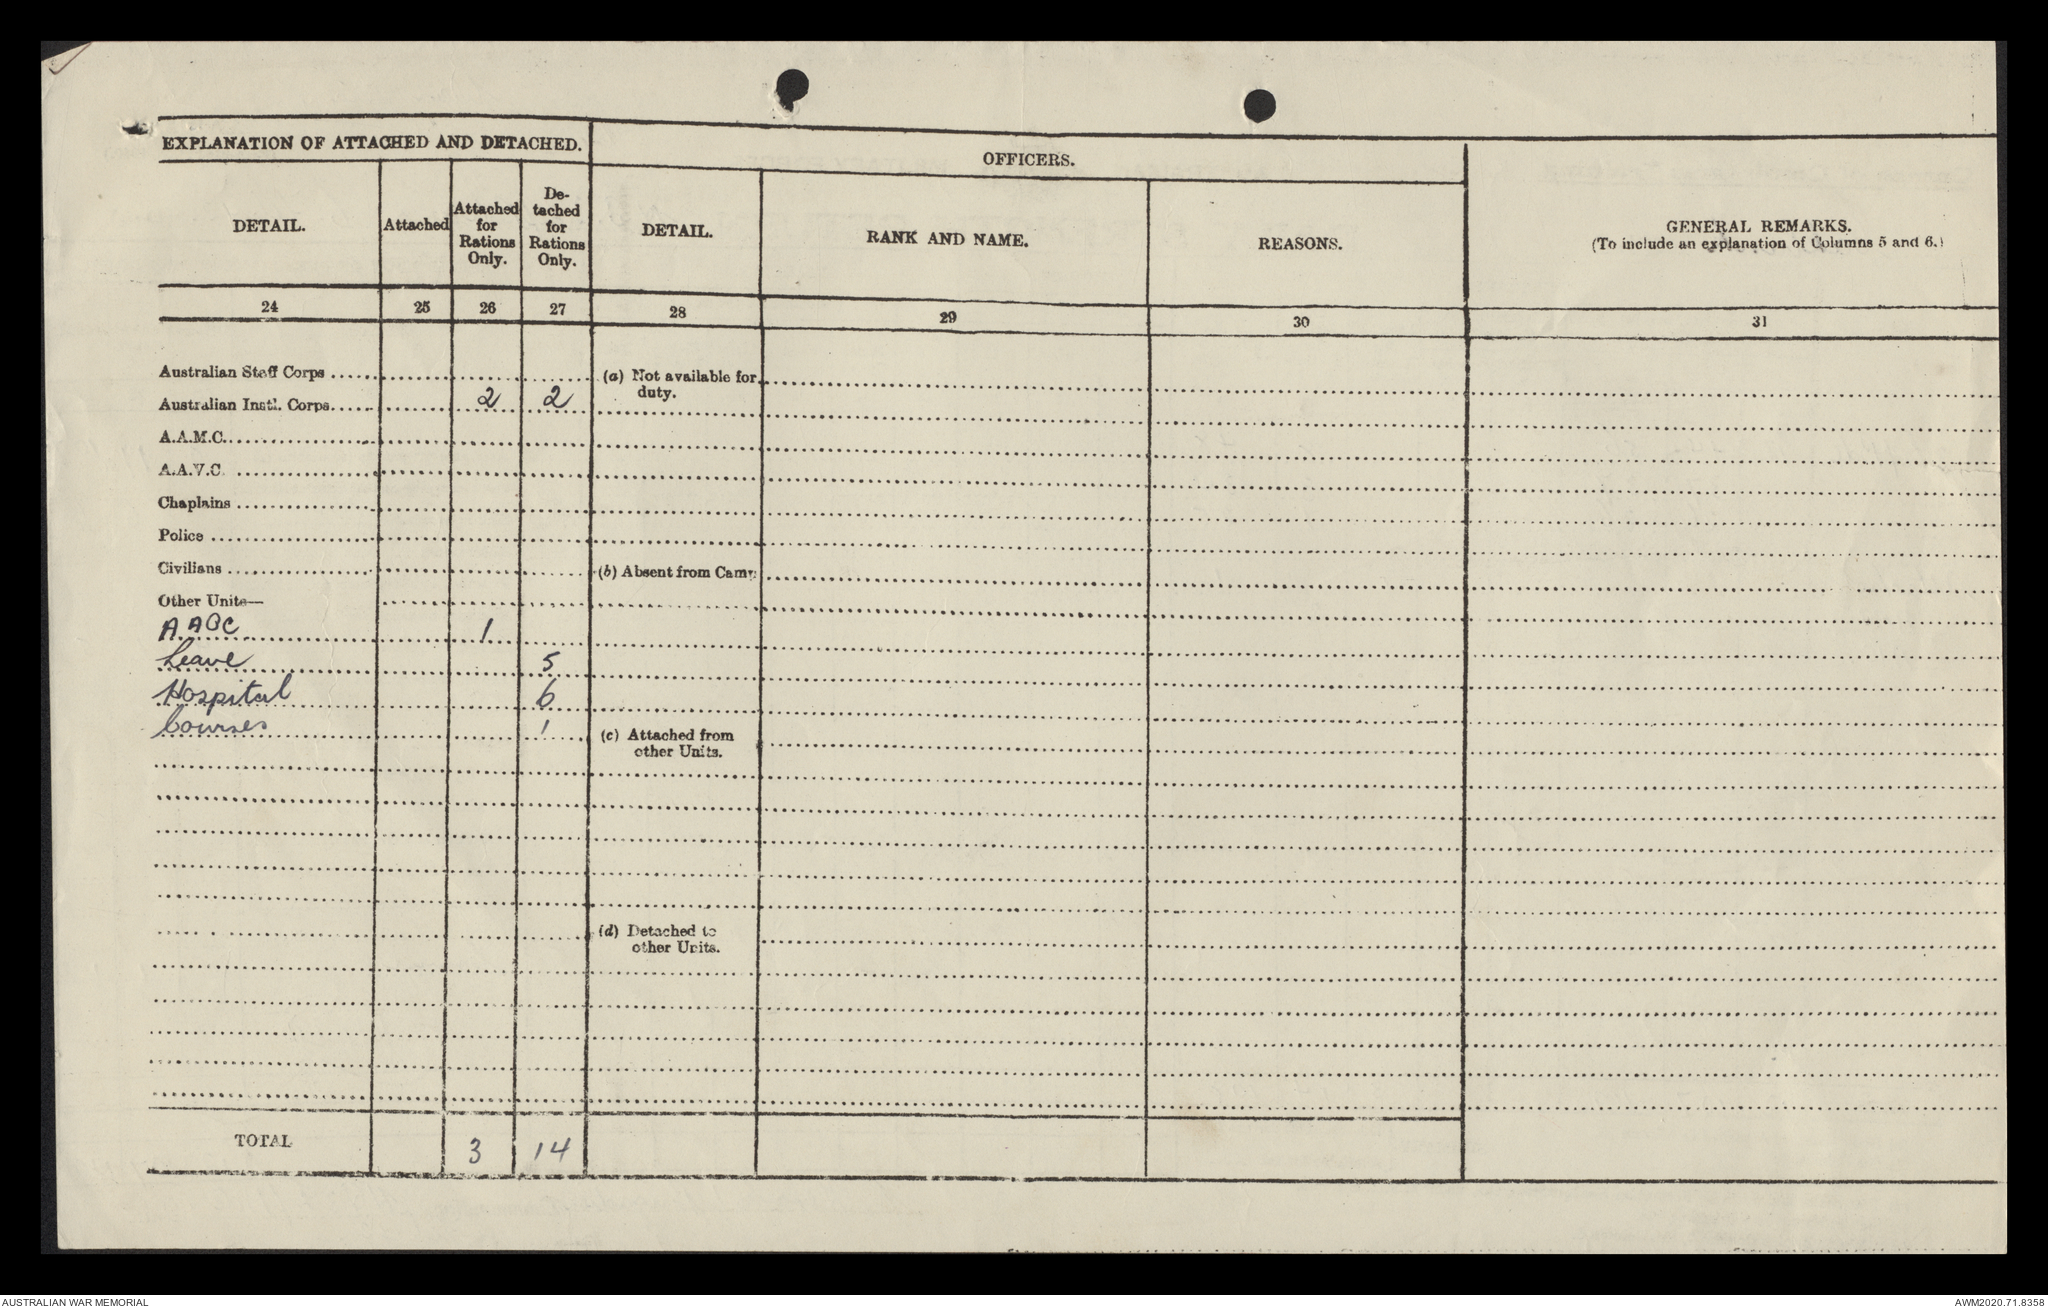 EXPLANATION OF ATTACHED AND DETACHED.
OFFICERS.
DETAIL.
Attached
Attached for Rations Only.
De-tached for Rations Only.
DETAIL.
RANK AND NAME.
REASONS.
GENERAL REMARKS.
(To include an explanation of Columns 5 and 6.)
24 25 26 27 28 29 30 31
Australian Staff Corps
(a) Not available for duty.
Australian Instl. Corps 2 2
A.A.M.C.
A.A.V.C.
Chaplains
Police
Civilians
(b) Absent from Camp
Other Units—
AAOC 1
Leave 5
Hospital 6
Courses 1
(c) Attached from other Units.
(d) Detached to other Units.
TOTAL 3 14
AUSTRALIAN WAR MEMORIAL
AWM2020.71.8358